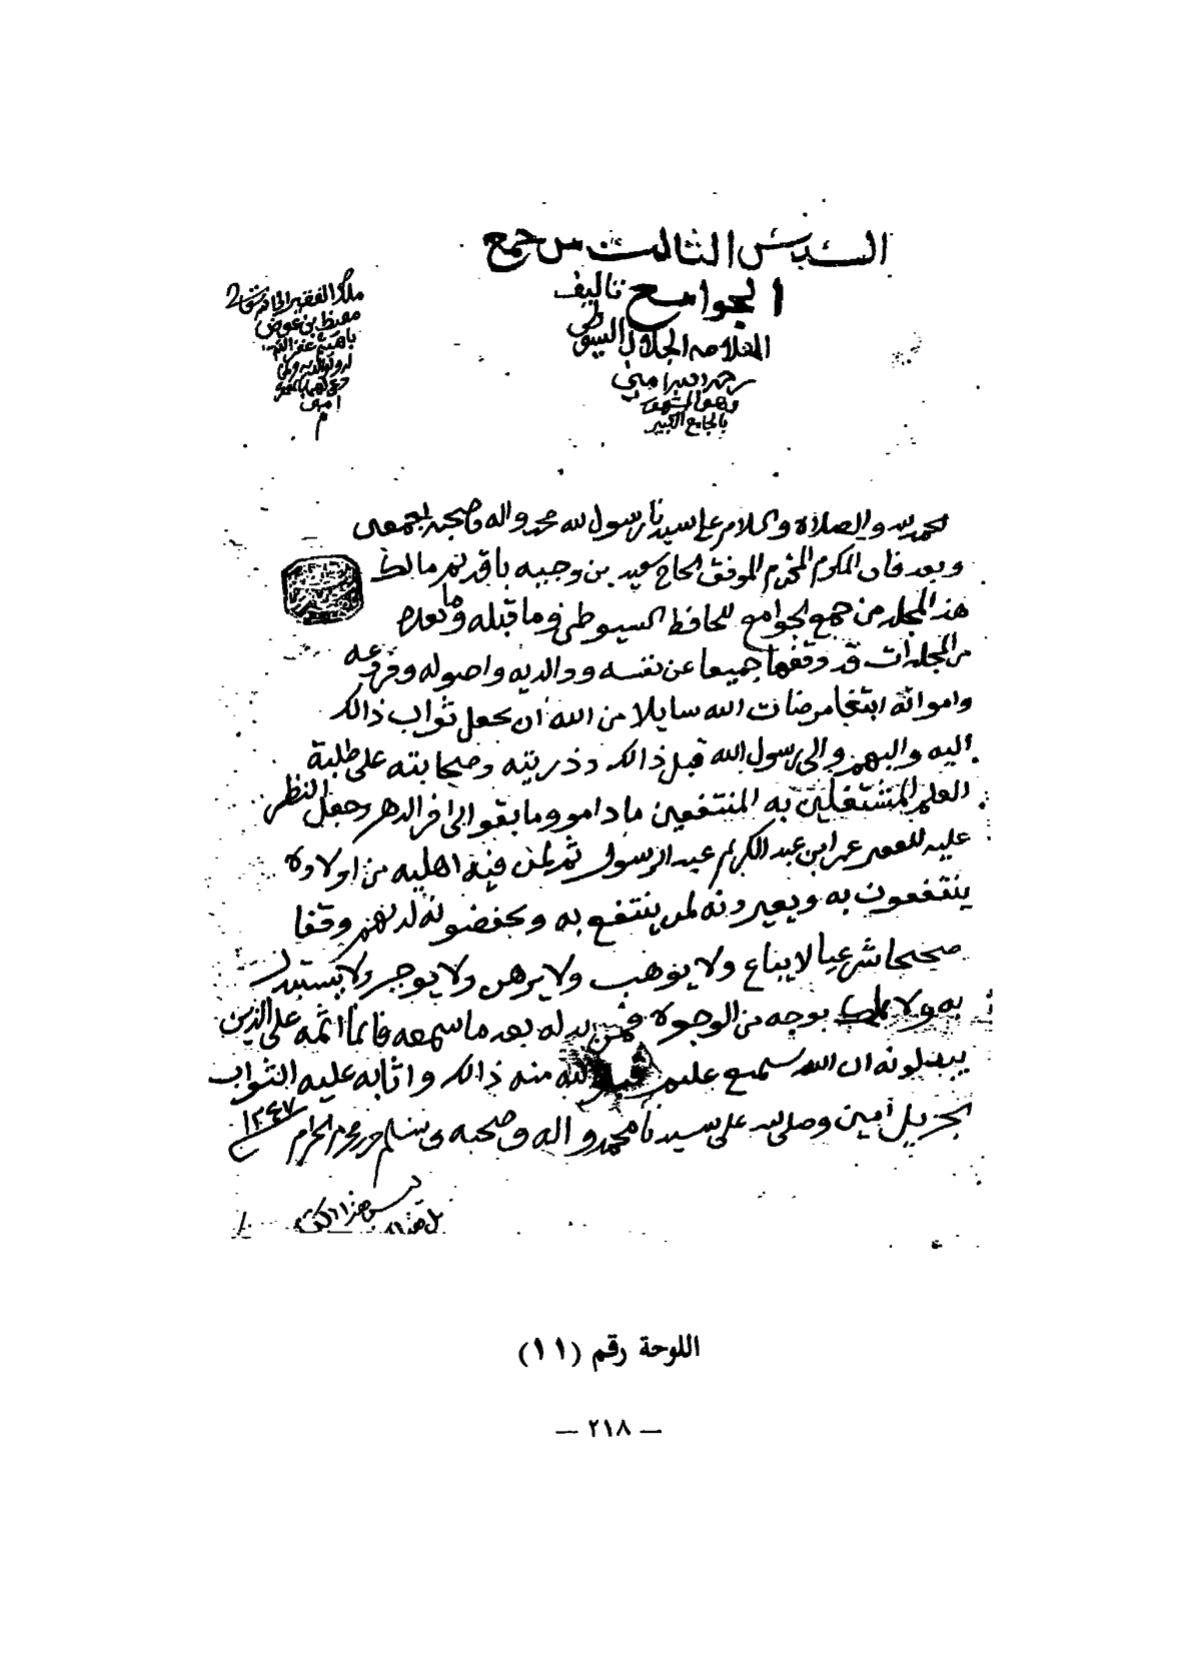 السدس الثالث من جمع
الجوامع تاليف
العلامه الجلال السيوطي
رحمه الله امين
وهو المشهور
بالجامع الكبير
ملك الفقير الى الله
بن عوض
غفر الله
له ولوالديه
امين
م
لحمد لله والصلاة والسلام على سيدنا رسول الله محمد واله وصحبه اجمعين
وبعد فان المكرم المحترم الموفق الحاج سعيد بن وجيه باقدنهر مالك
هذا المجلد من جمع الجوامع للحافظ السيوطي وما قبله وما بعده
من المجلدات قد وقفها جميعا عن نفسه ووالديه واصوله وفروعه
وامواته ابتغا مرضات الله سايلا من الله أن يجعل ثواب ذالك
اليه واليهم والى رسول الله قبل ذالك وذريته وصحابته على طلبة
العلم المشتغلين به المنتفعين ما داموا وما بقوا الى اخر الدهر وجعل النظر
عليه للفقير عمر ابن عبد الكريم عبد الرسول ثم لمن فيه اهليه من اولاده
ينتفعون به ويعيرونه لمن ينتفع به ويحفضونه لديهم وقفا
صحيحا شرعيا لا يباع ولا يوهب ولا يرهن ولا يوجر ولا يستبدل
به ولا يملك بوجه من الوجوه فمن بدله بعد ما سمعه فانما اثمه على الذين
يبدلونه ان الله سميع عليم قبل الله منه ذالك واثابه عليه الثواب
الجزيل آمين وصلى الله على سيدنا محمد واله وصحبه وسلم حرر محرم الحرام ١٢٤٧
هذا الكتاب
اللوحة رقم (١١)
— ٢١٨ —